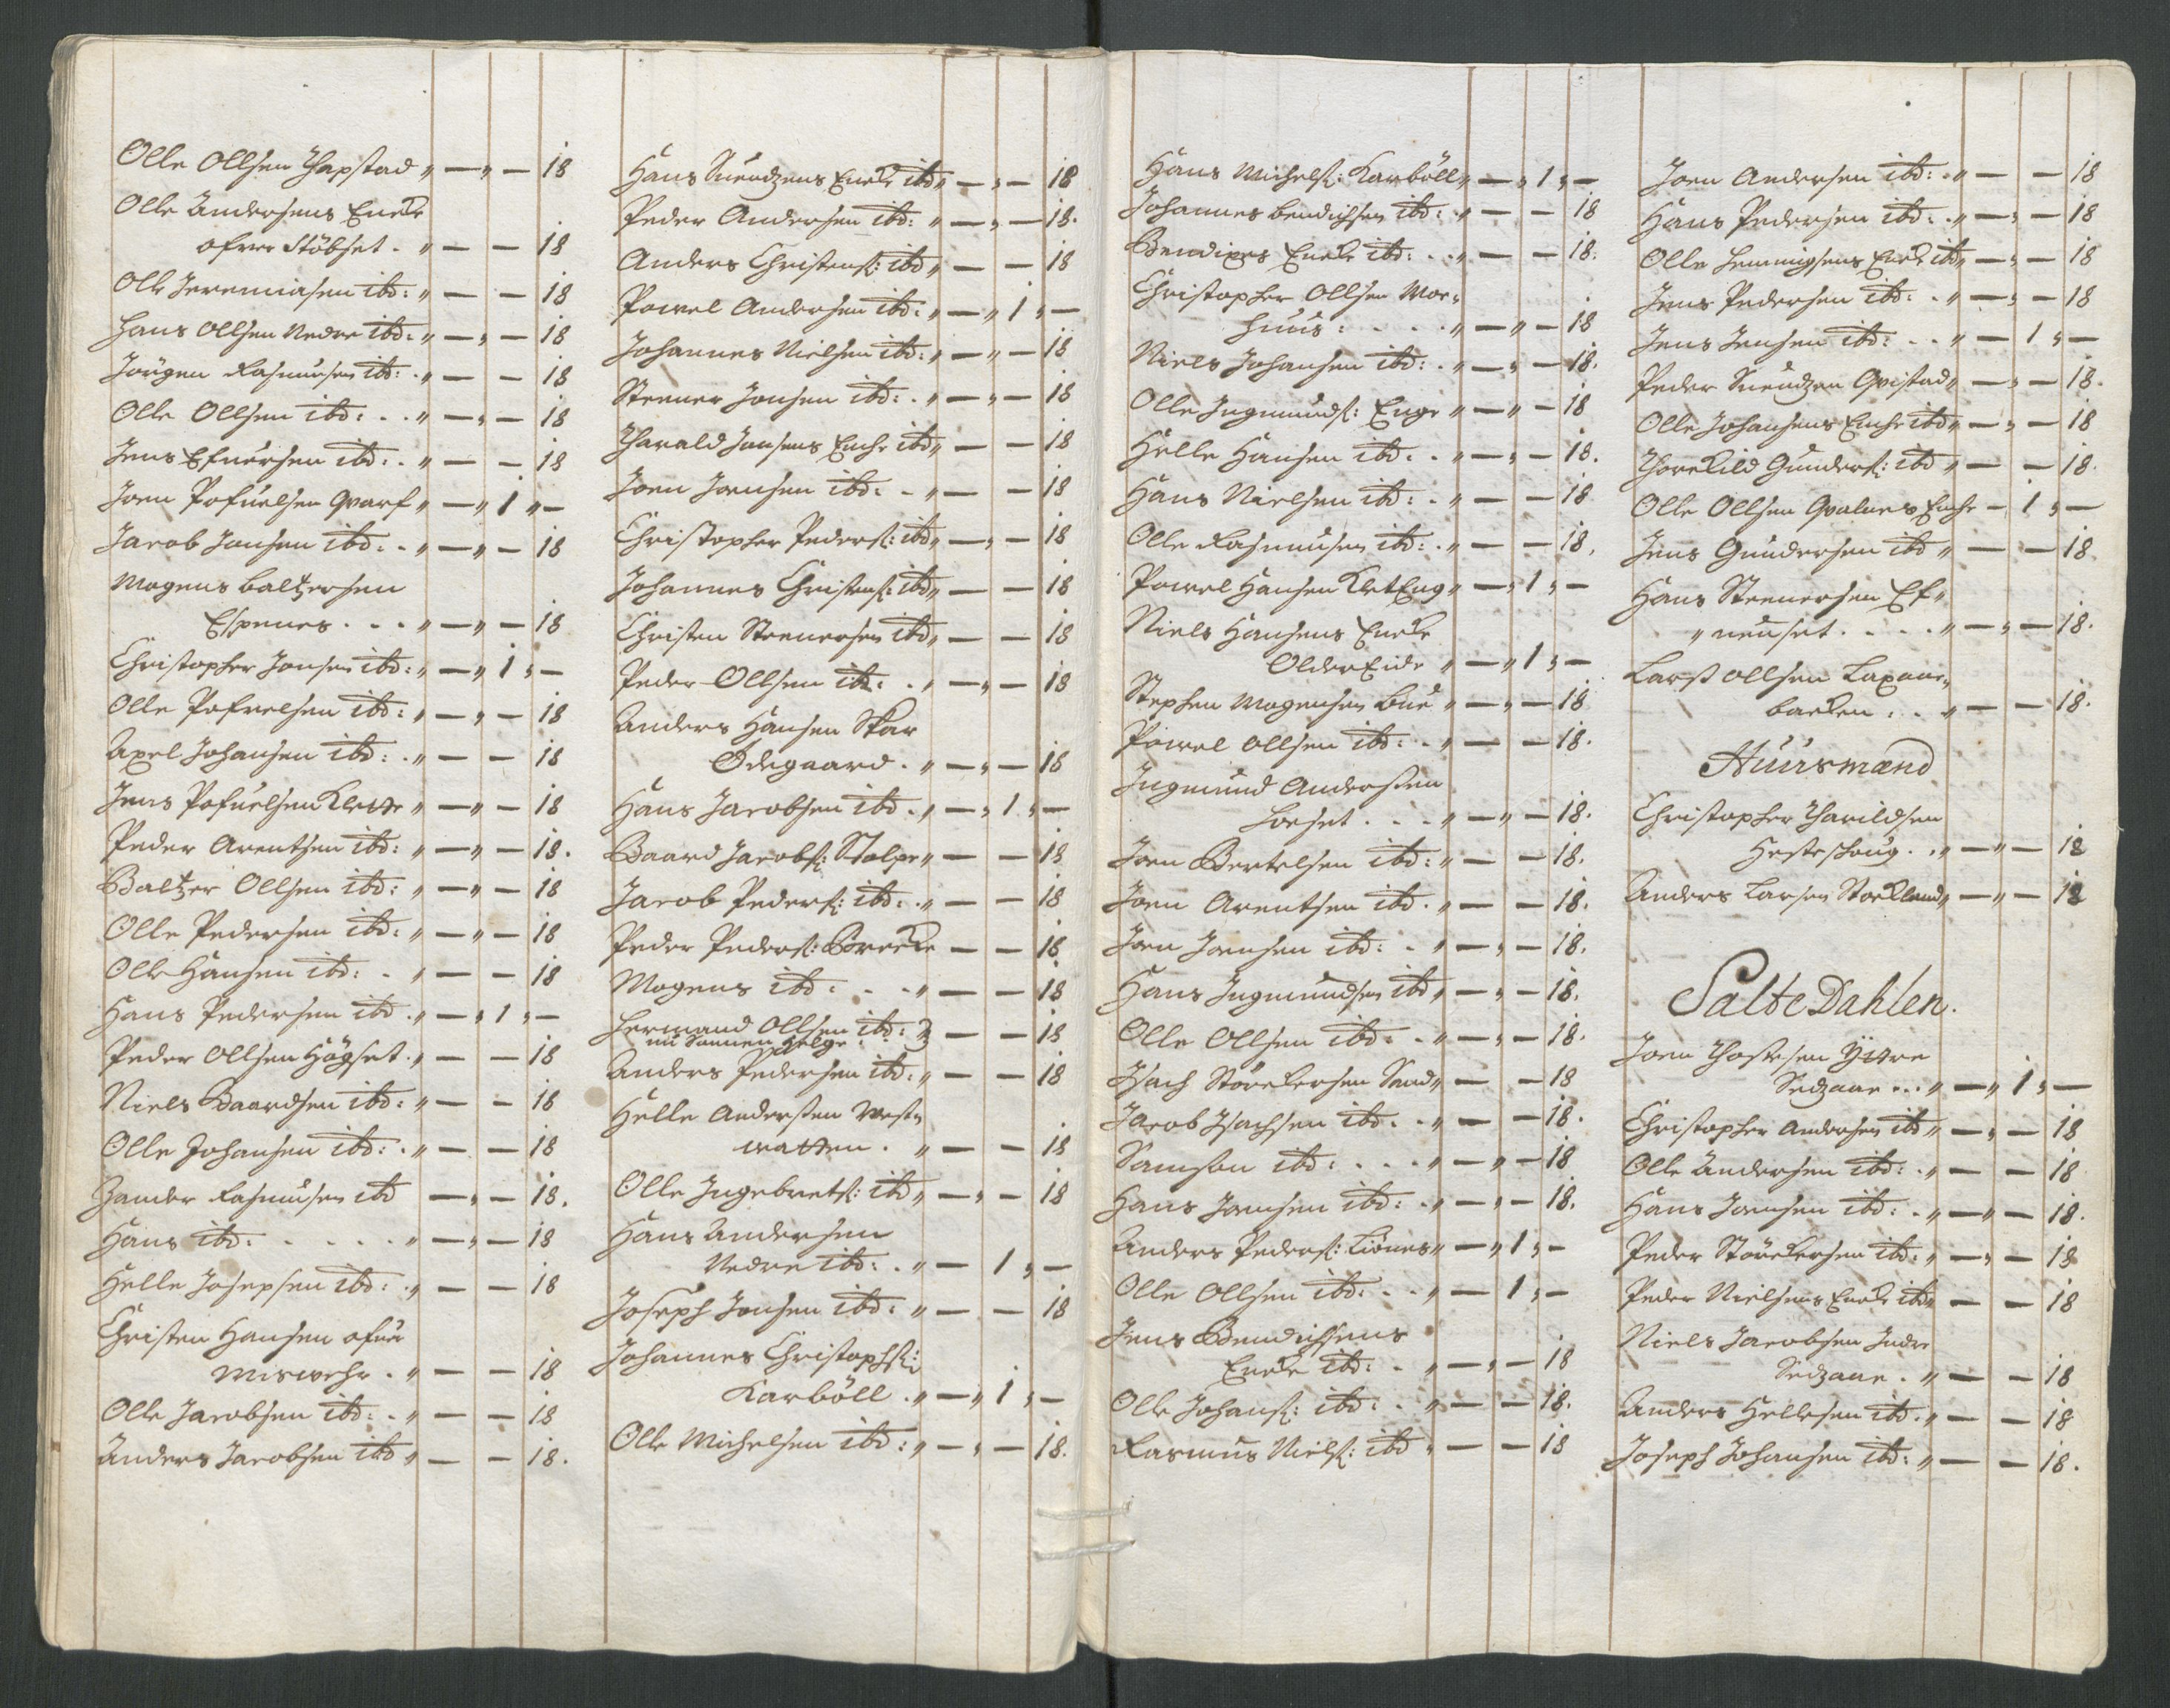 Olle Ollsen Thapstad „ — „ — 18
Olle Andersens Encke
ofver Stöbset . „ — — 18
Olle Jeremiasen ibd: „ — — 18
Hans Ollsen Nedre ibd: „ — „ — 18
Jörgen Rasmusen ibd: . „ — — 18
Olle Ollsen ibd: . . „ — „ — 18
Jens Efuersen ibd: . „ — — 18
Joen Pofuelsen Qvarf „ — „ 1 „ —
Jacob Jonsen ibd: . „ — „ — 18
Mogens Baltzersen
Espenes . . . „ — „ — 18
Christopher Jonsen ibd: „ — „ 1 „ —
Olle Pofvelsen ibd: „ — „ — 18
Axel Johansen ibd: . „ — — 18
Jens Pofuelsen Klette „ — „ — 18
Peder Arentsen ibd: „ — „ — 18.
Baltzer Ollsen ibd: „ — „ — 18
Olle Pedersen ibd: „ — „ — 18
Olle Hansen ibd: . „ — — 18
Hans Pedersen ibd . „ — „ 1 „ —
Peder Ollsen Högset . „ — — 18
Niels Baardsen ibd: „ — — 18
Olle Johansen ibd: . „ — — 18
Zander Rasmusen ibd — „ — 18.
Hans ibd: . . . . . „ — „ — 18
Helle Josepsen ibd: . „ — — 18
Christen Hansen ofuer
Misvehr . „ — — 18
Olle Jacobsen ibd: . „ — — 18
Anders Jacobsen ibd „ — — 18.
Hans Suendzens Encke ibd „ — „ — 18
Peder Andersen ibd: „ — „ — 18.
Anders Christens: ibd „ — — 18
Powel Andersen ibd: „ — „ 1 „ —
Johannes Nielsen ibd: „ — „ — 18
Steener Jonsen ibd: . „ — „ — 18
Harald Jonsens Enche ibd „ — — 18
Joen Joensen ibd: . „ — — 18
Christopher Peders: ibd „ — „ — 18
Johannes Christens: ibd „ — — 18
Christen Steenersen ibd „ — — 18
Peder Ollsen ibd: . „ — „ — 18
Anders Hansen Skar
Ödegaard . „ — „ — 18
Hans Jacobsen ibd . „ — „ 1 „ —
Baard Jacobs: Stolpe „ — — 18
Jacob Peders: ibd: . „ — — 18
Peder Peders: Brecke — — 18
Mogens ibd: . . . „ — — 18
Hermand Ollsen ibd: } — — 18
nu Sönnen Helge
Anders Pedersen ibd: „ — — 18
Helle Andersten West„
watten . „ — — 18
Olle Ingebrets: ibd „ — „ — 18
Hans Andersen
Nedre ibd: . „ — 1 „ —
Joseph Jonsen ibd: „ — — 18
Johannes Christophs:
Karböll . „ — „ 1 „ —
Olle Michelsen ibd: „ — „ — 18.
Hans Michels: Karböll „ — „ 1 „ —
Johannes Bendichsen ibd: „ — — 18
Bendixes Encke ibd: . . „ — — 18.
Christopher Ollsen Moe„
huus: . . . . „ — „ — 18
Niels Johansen ibd: . „ — „ — 18.
Olle Ingmunds: Enge „ — „ — 18
Helle Hansen ibd: . „ — „ — 18.
Hans Nielsen ibd: . „ — — 18
Olle Rasmusen ibd: . „ — — 18.
Powel Hansen KletEng „ — „ 1 „ —
Niels Hansens Encke
OlderEide „ — „ 1 „ —
Stephen Mogensen Bue „ — „ — 18
Powel Ollsen ibd: . „ — — 18.
Ingmund Andersten
Loeset . . . „ — „ — 18.
Joen Bertelsen ibd: „ — — 18.
Joen Arentsen ibd . „ — — 18.
Joen Joensen ibd: . „ — „ — 18.
Hans Ingmundsen ibd „ — „ — 18.
Olle Ollsen ibd: . „ — „ — 18.
Isach Störckersen Sand „ — — 18
Jacob Isachsen ibd . . „ — — 18.
Samson ibd: . . . „ — „ — 18
Hans Joensen ibd: . „ — „ — 18.
Anders Peders: Liönes „ — „ 1 „ —
Olle Ollsen ibd: . . „ — 1 „ —
Jens Bendichsens
Encke ibd: . „ — „ — 18
Olle Johans: ibd: . „ — — 18.
Rasmus Niels: ibd „ — — 18
Joen Andersen ibd: . „ — — 18
Hans Pedersen ibd: . „ — „ — 18
Olle Hemmigsens Encke ibd „ — „ — 18
Jens Pedersen ibd: . „ — „ — 18
Jens Jensen ibd: . . „ — 1 „ —
Peder Suendzen Qvistad „ — „ — 18.
Olle Johansens Enche ibd „ — „ — 18
Thorckild Gunders: ibd „ — — 18.
Olle Ollsen Qvalnes Enche — 1 „ —
Jens Gundersen ibd „ — — 18
Hans Steenersen Ef„
„neuset . . . . „ — „ — 18.
Larss Ollsen Laxaae„
backen . . „ — — 18.
Huusmænd
Christopher Tharildsen
Hesteschoug . . „ — „ — 12
Anders Larsen Storkland „ — „ — 12
Salte Dahlen.
Joen Thostesen Yttre
Sedzaae ... „ — „ 1 „ —
Christopher Andersen ibd „ — „ — 18
Olle Andersen ibd: . „ — — 18
Hans Joensen ibd: . „ — „ — 18.
Peder Störckersen ibd: „ — „ — 18
Peder Nielsens Encke ibd „ — — 18
Niels Jacobsen Indre
Sedzaae . „ — — 18
Anders Hellesen ibd . „ — — 18
Joseph Johansen ibd: „ — — 18.